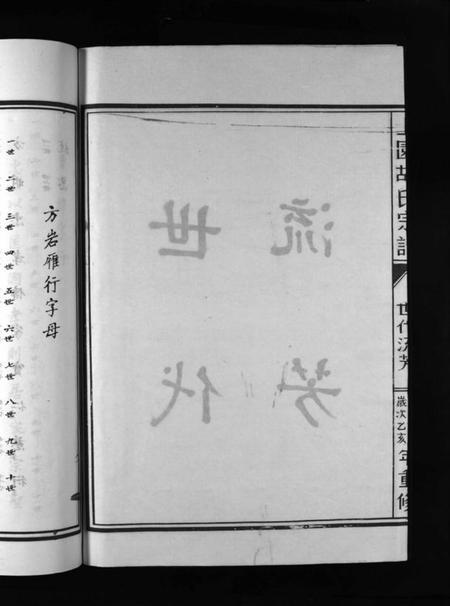 胡氏宗譜
世代流芳
歲次乙亥年重修
世代
流芳
方岩雁行字母
一世 二世 三世 四世 五世 六世 七世 八世 九世 十世